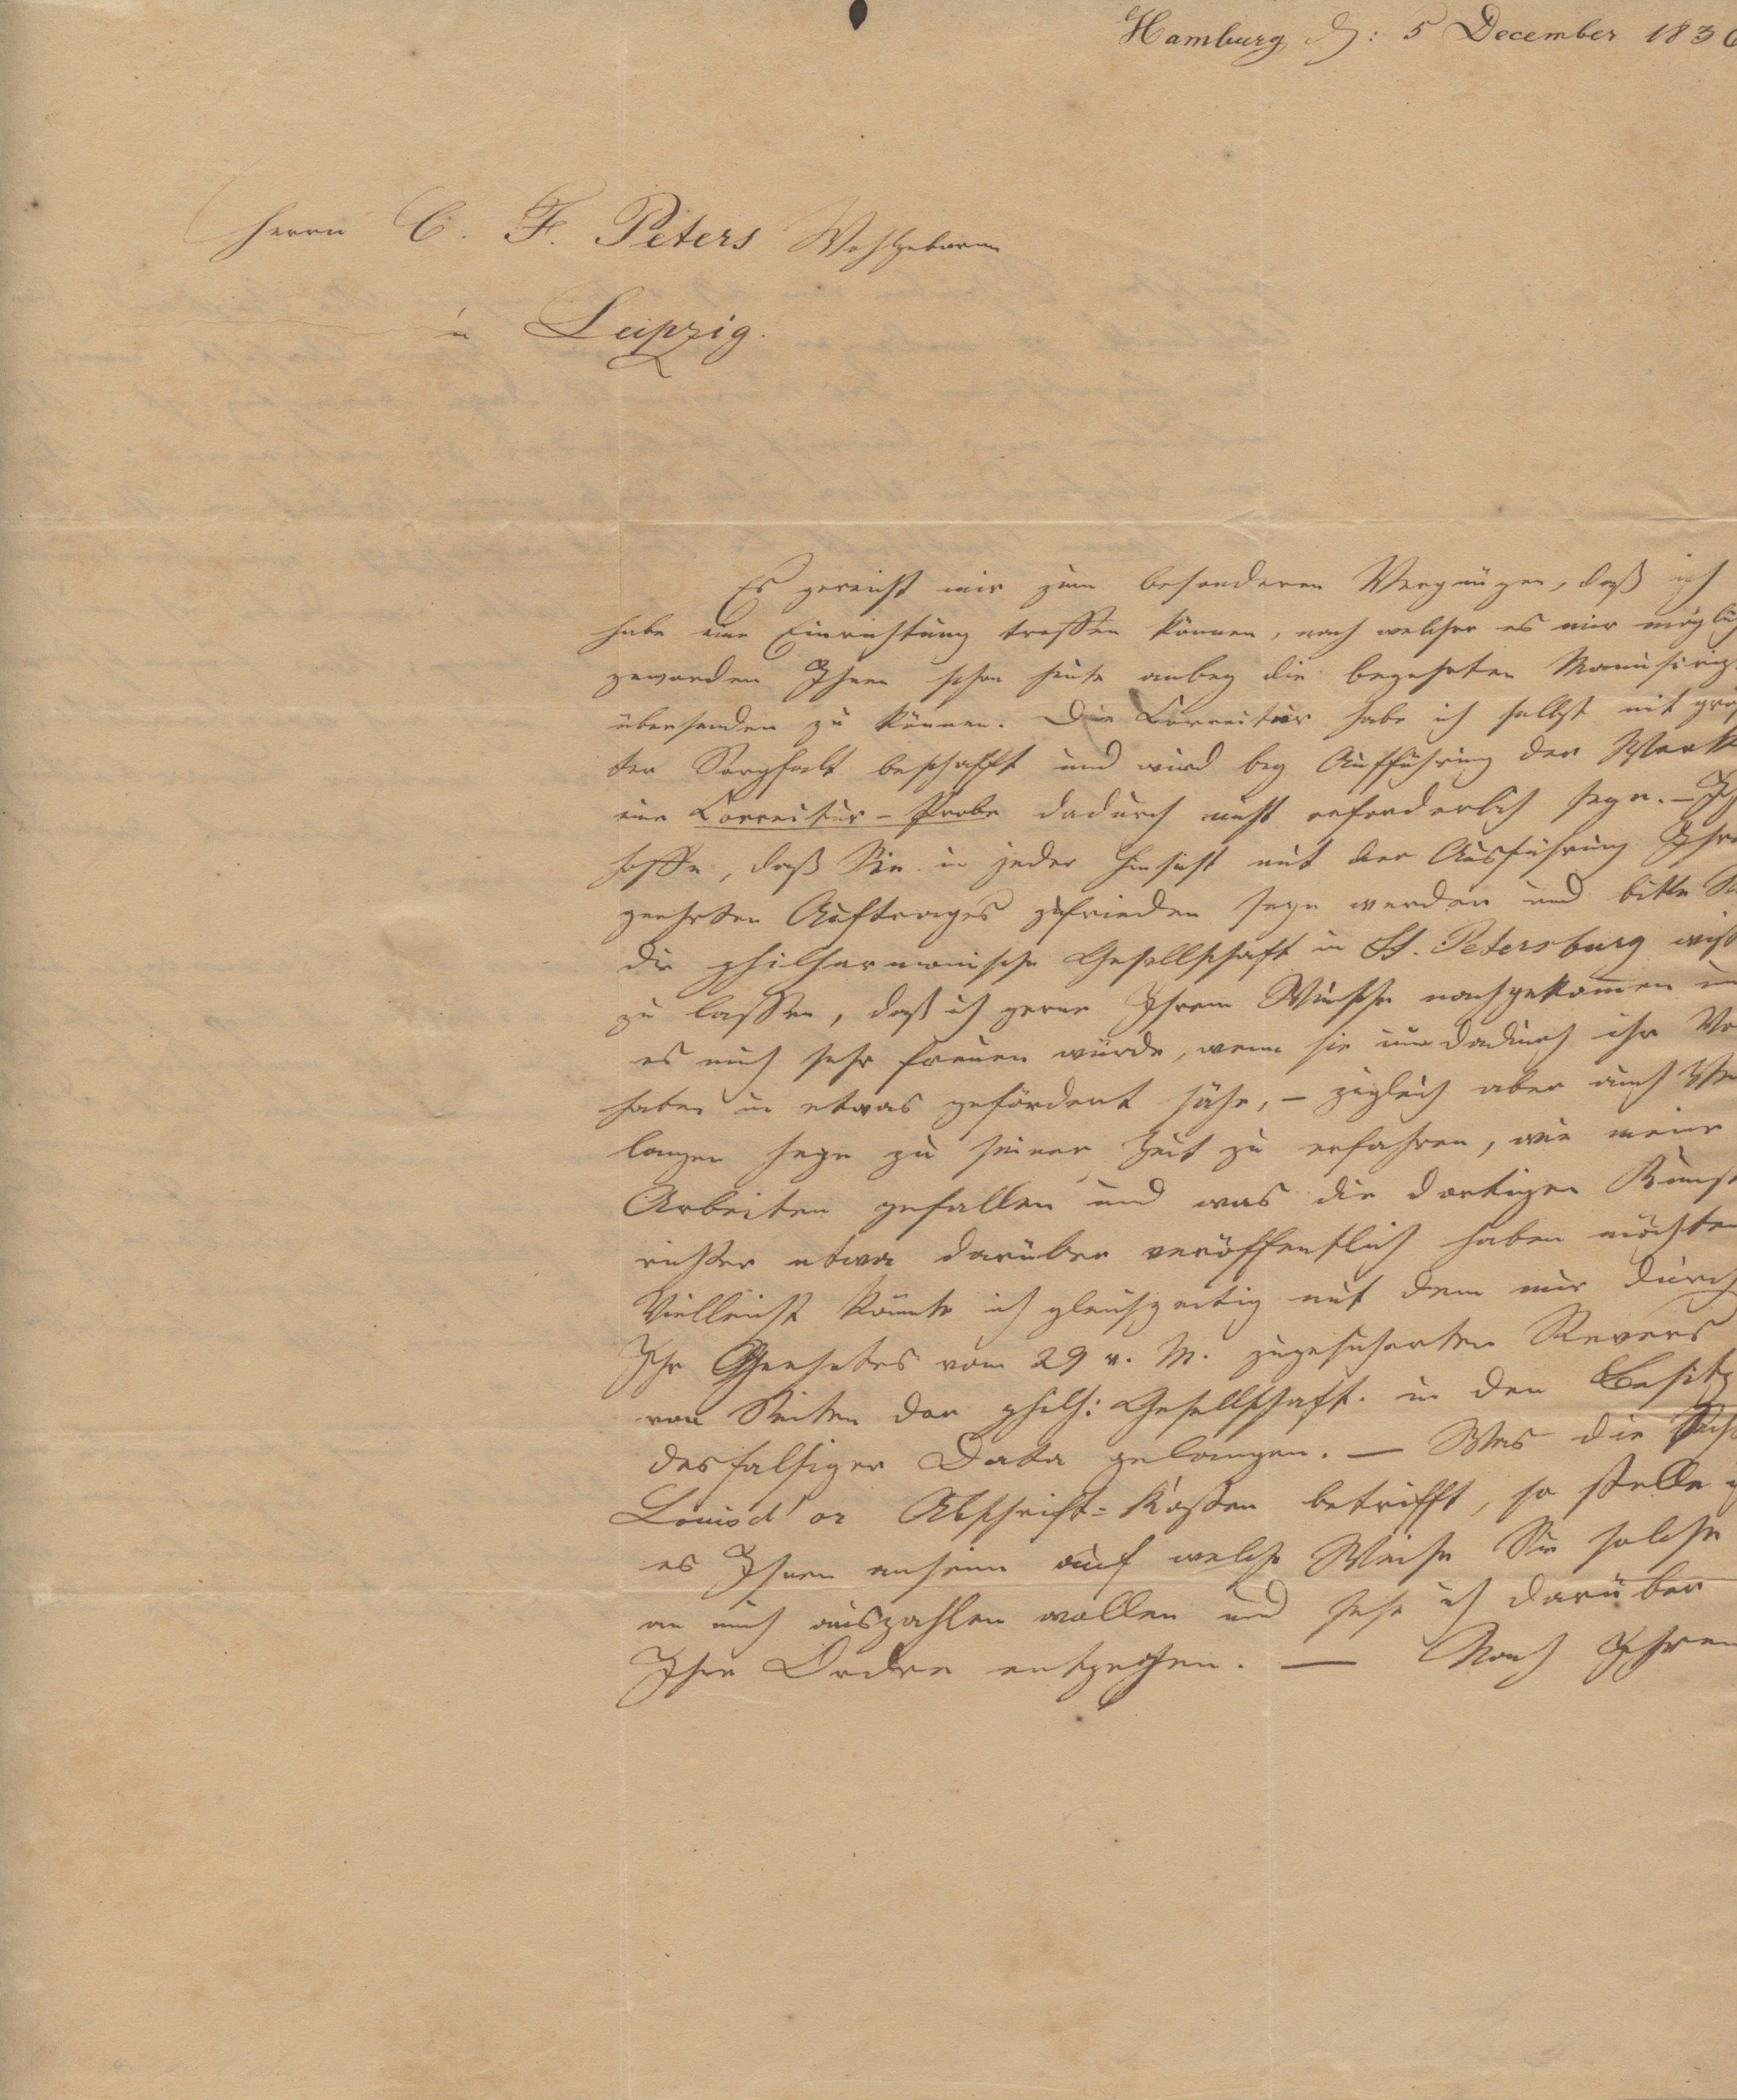 Hamburg d: 5 December 183
Herrn C. F. Peters Wohlgeboren
in Leipzig.
Es gereicht mir zum besonderen Vergnügen, daß ich
habe eine Einrichtung treffen können, nach welcher es mir möglich
geworden Ihnen schon heute anbey die begehrten Manuscrip
übersenden zu können. Die Correctur habe ich selbst mit größ
ter Sorgfalt beschafft und wird bey Aufführung der Werke
eine Correctur-Probe dadurch nicht erforderlich seyn. – Ich
hoffe, daß Sie in jeder Hinsicht mit der Ausführung Ihre
geehrten Auftrages zufrieden seyn werden und bitte Si
die philharmonische Gesellschaft in St. Petersburg wiß
zu lassen, daß ich gerne Ihrem Wunsche nachgekommen un
es mich sehr freuen würde, wenn sie nur dadurch ihr Vor
haben in etwas gefördert sähe, – zugleich aber auch Ver
langen hege zu seiner Zeit zu erfahren, wie meine
Arbeiten gefallen und was die dortigen Kunst
richter etwa darüber veröffentlich haben möchten
Vielleicht könnte ich gleichzeitig mit dem mir durch
Ihr Geehrtes vom 29 v. M. zugesicherten Revers
von Seiten der philh: Gesellschaft. in den Besitz
desfalsiger Data gelangen. — Was die
Louisd'or Abschrift-Kosten betrifft, so stelle
es Ihnen anheim auf welche Weise Sie solche
an mich auszahlen wollen und sehe ich darüber
Ihre Ordre entgegen. — Nach Ihrem